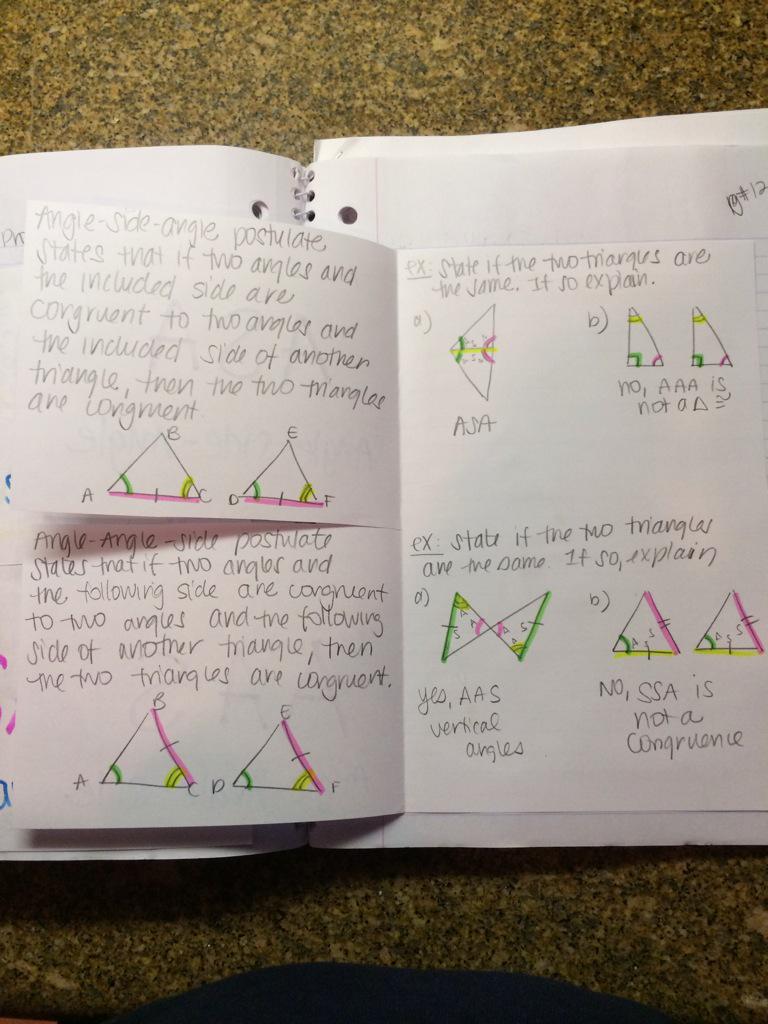 Angle-side-angle postulate
states that if two angles and
the included side are
congruent to two angles and
the included side of another
triangle, then the two triangles
are congruent.
B
E
A
C
D
F
Angle-Angle-side postulate
states that if two angles and
the following side are congruent
to two angles and the following
side of another triangle, then
the two triangles are congruent.
B
E
A
C
D
F
pg#12
ex: State if the two triangles are
the same. If so explain.
a)
ASA
b)
no, AAA is
not a △ ≅
ex: state if the two triangles
are the same. If so, explain
a)
A
S
A
A
A
S
yes, AAS
vertical
angles
b)
A
S
S
A
S
S
NO, SSA is
not a
congruence